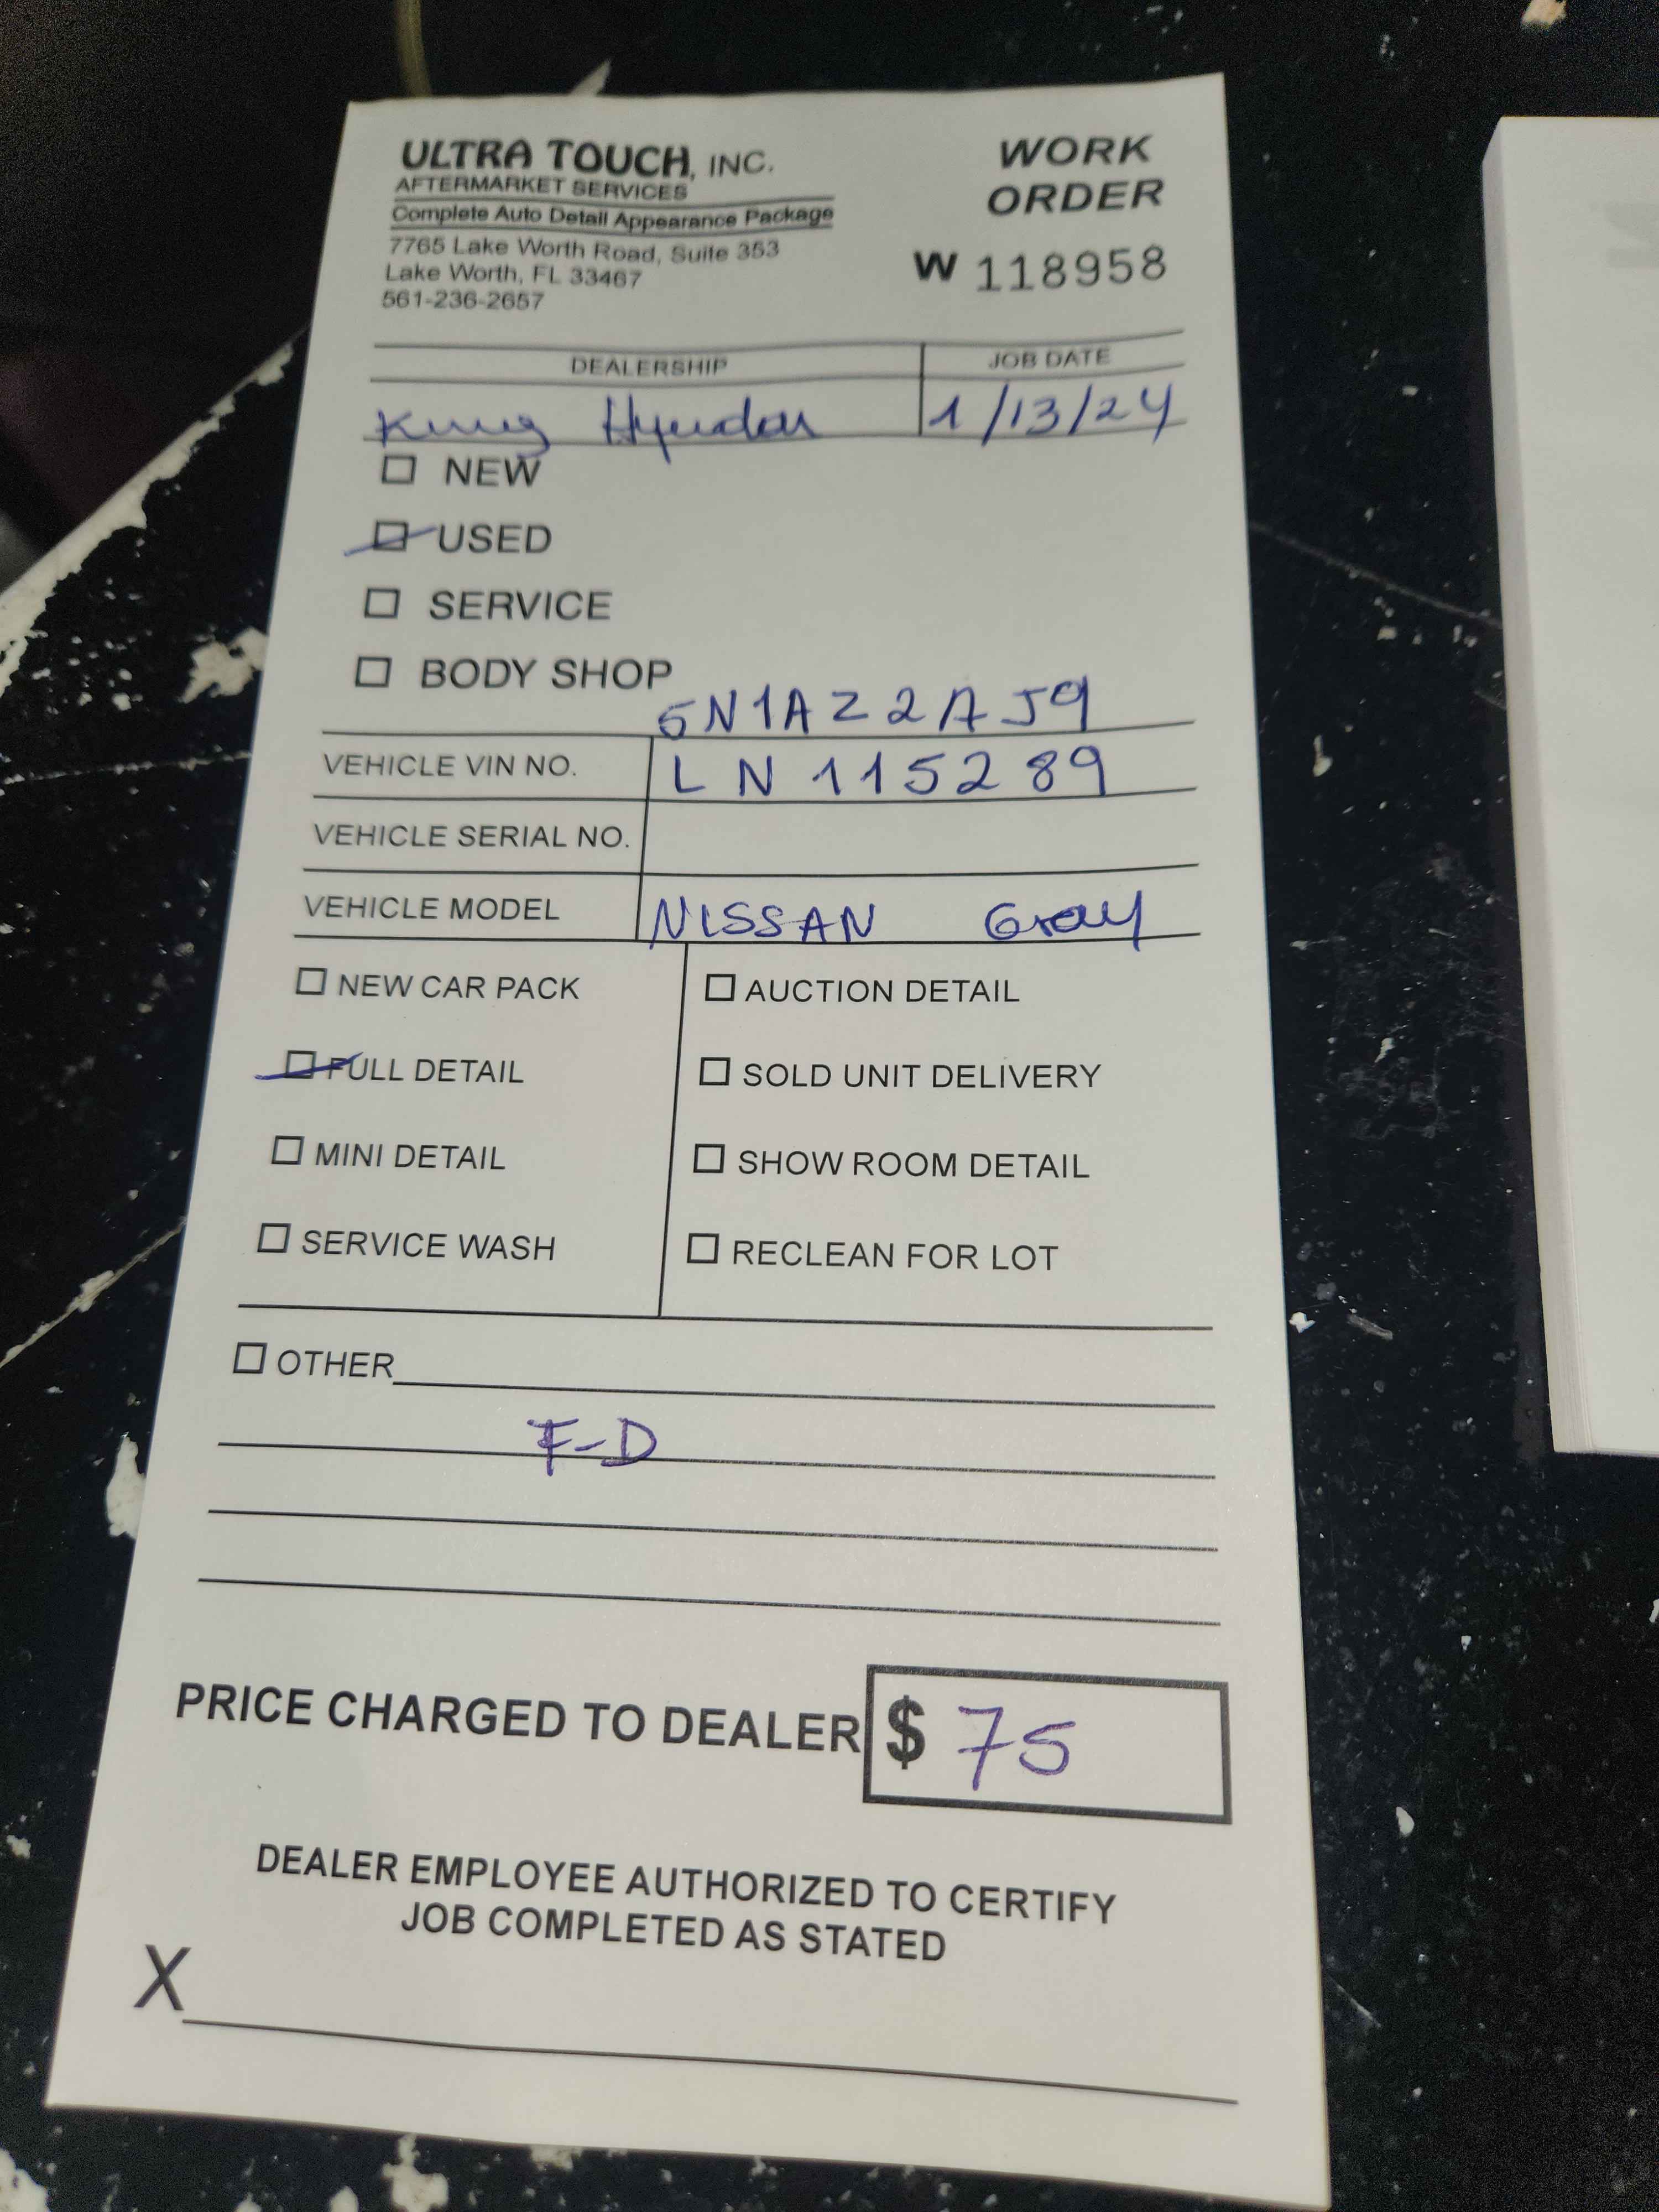 ULTRA TOUCH, INC.
AFTERMARKET SERVICES
Complete Auto Detail Appearance Package
7765 Lake Worth Road, Suite 353
Lake Worth, FL 33467
561-236-2657
WORK
ORDER
W 118958
DEALERSHIP
JOB DATE
King Hyundai
1/13/24
NEW
USED
SERVICE
BODY SHOP
5N1AZ2AJ9
VEHICLE VIN NO. LN115289
VEHICLE SERIAL NO.
VEHICLE MODEL NISSAN Gray
NEW CAR PACK
FULL DETAIL
MINI DETAIL
SERVICE WASH
AUCTION DETAIL
SOLD UNIT DELIVERY
SHOW ROOM DETAIL
RECLEAN FOR LOT
OTHER
F-D
PRICE CHARGED TO DEALER $ 75
DEALER EMPLOYEE AUTHORIZED TO CERTIFY
JOB COMPLETED AS STATED
X